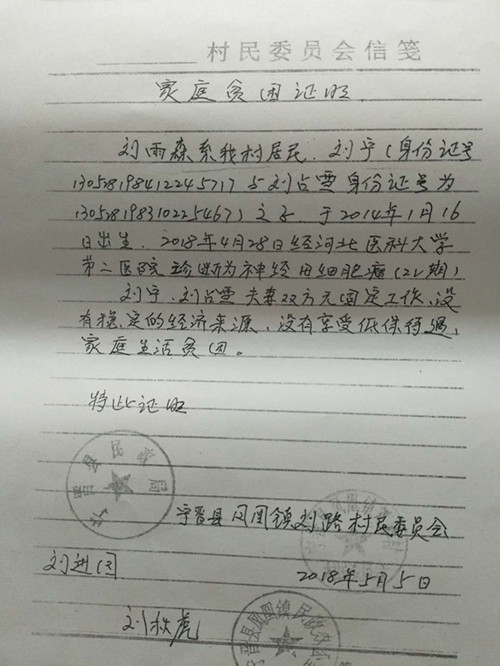 村民委员会信笺
家庭贫困证明
刘雨森系我村居民.刘宁(身份证号
130528198412245717与刘占雪身份证号为
130528198310225467)之子.于2014年1月16
日出生.2018年4月28日经河北医科大学
第二医院诊断为神经母细胞瘤(2L期)
刘宁.刘占雪夫妻双方无固定工作,没
有稳定的经济来源,没有享受低保待遇,
家庭生活贫困。
特此证明
宁晋县民政局
宁晋县凤凰镇刘路村民委员会
刘进
2018年5月5日
刘秋虎